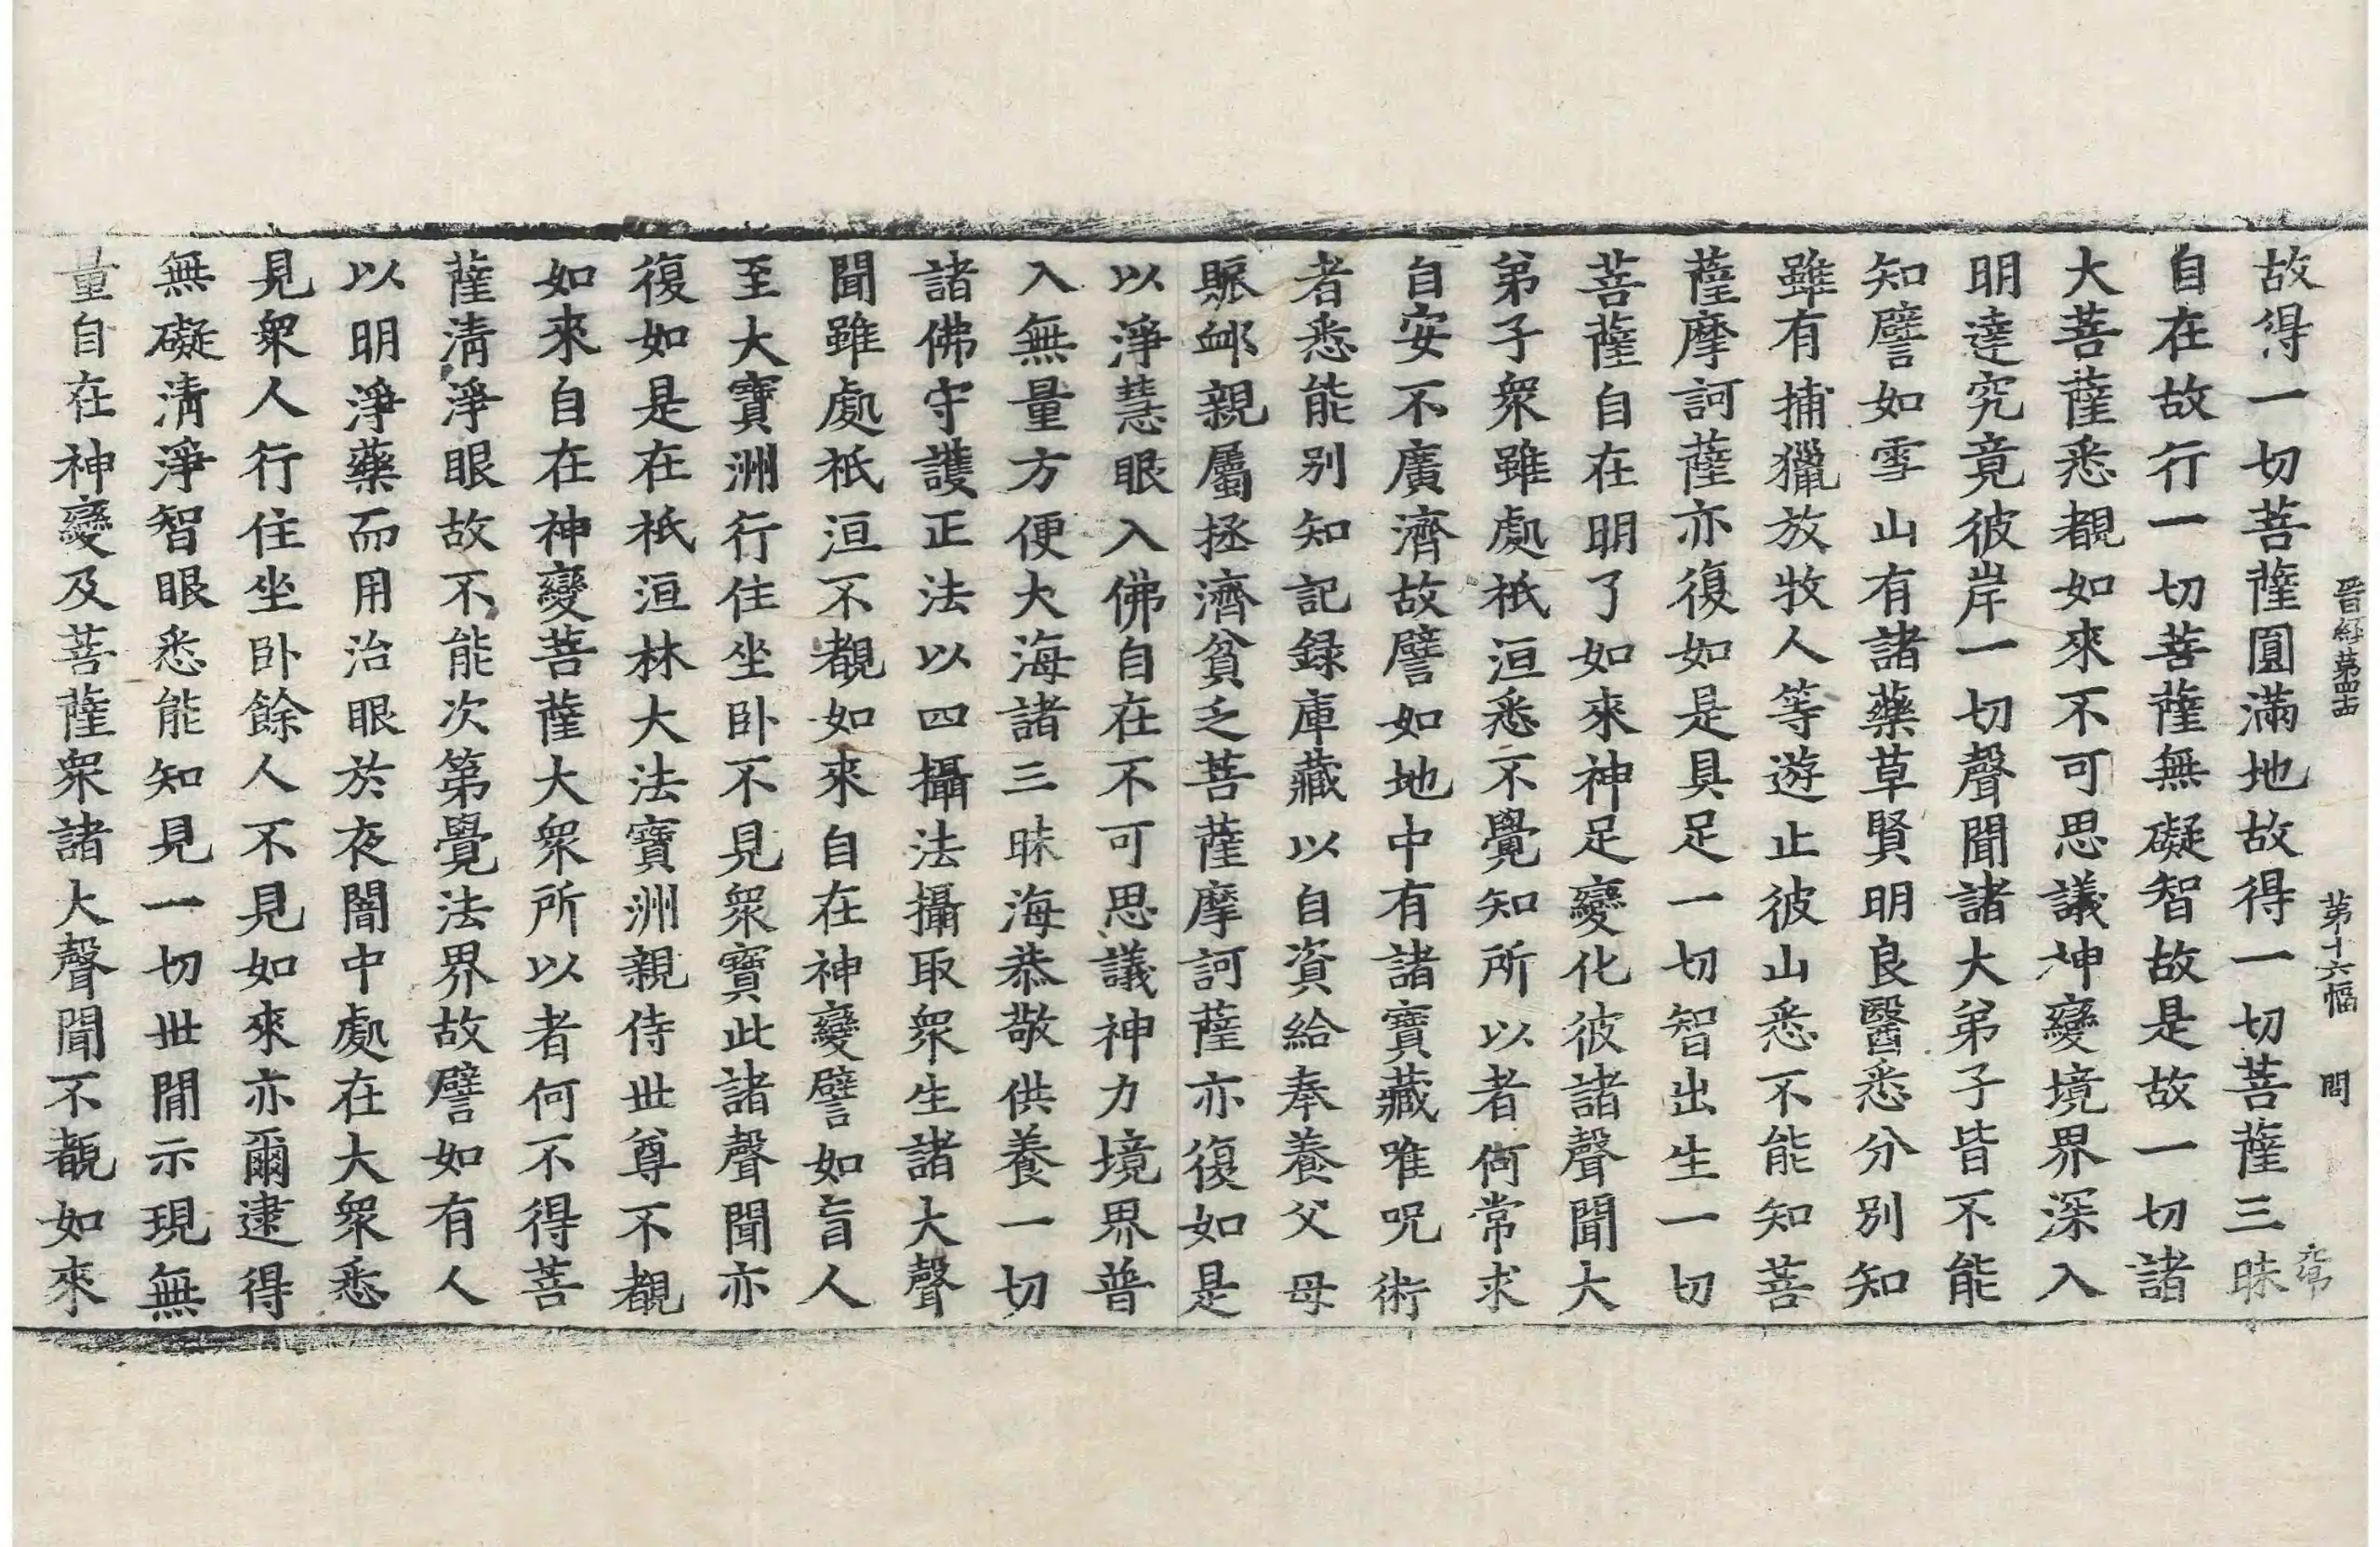 晉經第四十四 第十六幅 問
故得一切菩薩圓滿地故得一切菩薩三昧
自在故行一切菩薩無礙智故是故一切諸
大菩薩悉覩如來不可思議神變境界深入
明達究竟彼岸一切聲聞諸大弟子皆不能
知譬如雪山有諸藥草賢明良醫悉分別知
雖有捕獵放牧人等遊止彼山悉不能知菩
薩摩訶薩亦復如是具足一切智出生一切
菩薩自在明了如來神足變化彼諸聲聞大
弟子衆雖處祇洹悉不覺知所以者何常求
自安不廣濟故譬如地中有諸寶藏唯呪術
者悉能別知記録庫藏以自資給奉養父母
賑䘏親屬拯濟貧乏菩薩摩訶薩亦復如是
以淨慧眼入佛自在不可思議神力境界普
入無量方便大海諸三昧海恭敬供養一切
諸佛守護正法以四攝法攝取衆生諸大聲
聞雖處祇洹不覩如來自在神變譬如盲人
至大寶洲行住坐卧不見衆寶此諸聲聞亦
復如是在祇洹林大法寶洲親侍世尊不覩
如來自在神變菩薩大衆所以者何不得菩
薩清淨眼故不能次第覺法界故譬如有人
以明淨藥而用治眼於夜闇中處在大衆悉
見衆人行住坐卧餘人不見如來亦爾逮得
無礙清淨智眼悉能知見一切世間示現無
量自在神變及菩薩衆諸大聲聞不覩如來